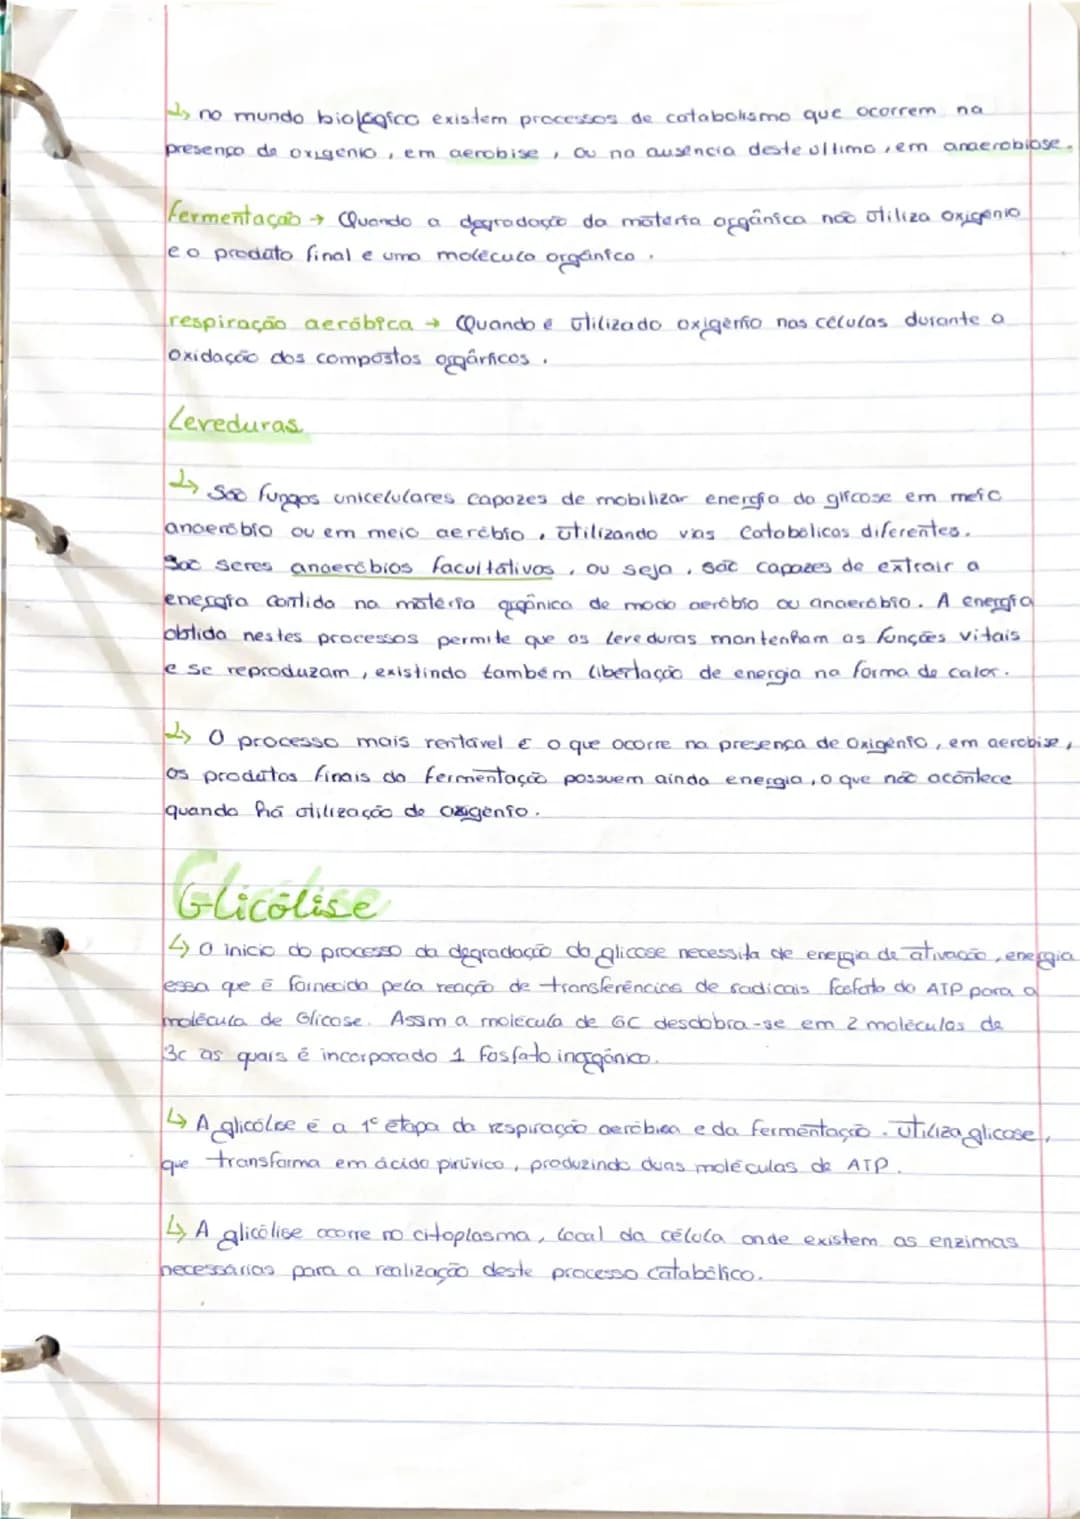 ↳ no mundo biológico existem processos de catabolismo que ocorrem na
presença de oxigénio, em aerobise, ou na ausência deste ultimo, em anaerobiose.
Fermentação → Quando a degradação da matéria orgânica não utiliza oxigénio
e o produto final e uma molécula orgânica.
respiração aeróbica → Quando é utilizado oxigénio nas células durante a
oxidação dos compostos orgânicos.
Leveduras
↳ São fungos unicelulares capazes de mobilizar energia da glicose em meio
anaeróbio ou em meio aeróbio, utilizando vias Catabólicas diferentes.
São seres anaeróbios facultativos, ou seja, são capazes de extrair a
energia contida na matéria orgânica de modo aeróbio ou anaeróbio. A energia
obtida nestes processos permite que as leveduras mantenham as funções vitais
e se reproduzam, existindo também libertação de energia na forma de calor.
↳ O processo mais rentável é o que ocorre na presença de Oxigénio, em aerobise,
os produtos finais da fermentação possuem ainda energia, o que não acontece
quando há utilização de oxigénio.
Glicólise
↳ O início do processo da degradação da glicose necessita de energia de ativação, energia
essa que é fornecida pela reação de transferências de radicais fosfato do ATP para a
molécula de Glicose. Assim a molécula de 6C desdobra-se em 2 moléculas de
3c às quais é incorporado 1 fosfato inorgânico.
↳ A glicólise é a 1º etapa da respiração aeróbica e da fermentação. Utiliza glicose,
que transforma em ácido pirúvico, produzindo duas moléculas de ATP.
↳ A glicólise ocorre no citoplasma, local da célula onde existem as enzimas
necessárias para a realização deste processo catabólico.